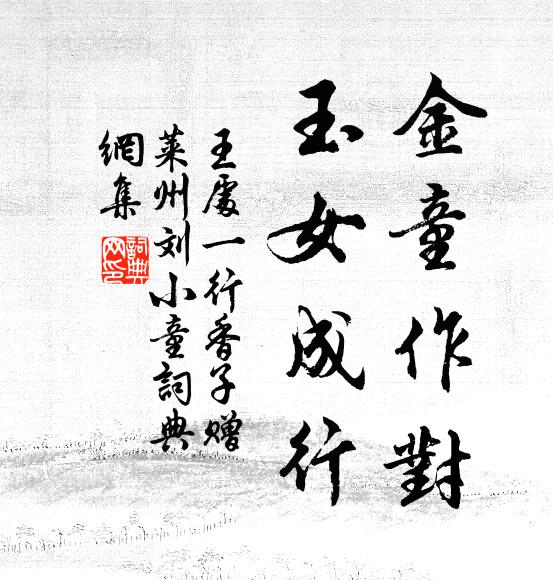 金童作對
玉女成行
王處一行香子赠
莱州刘小童詞典
網集
詞典網印